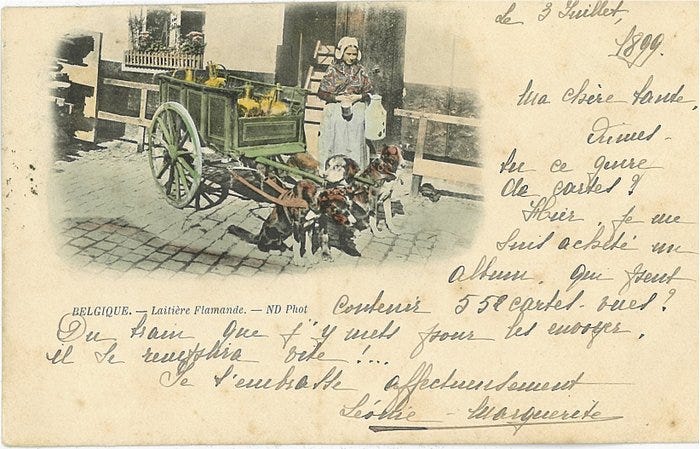 Le 3 Juillet,
1899.
Ma chère tante
Aimes-
tu ce genre
de cartes?
Hier, je me
suis acheté un
album qui peut
BELGIQUE. — Laitière Flamande. — ND Phot
contenir 552 cartes vues?
Du train que j'y mets pour les envoyer,
il se remplira vite!...
Je t'embrasse affectueusement
Léonie - Marguerite